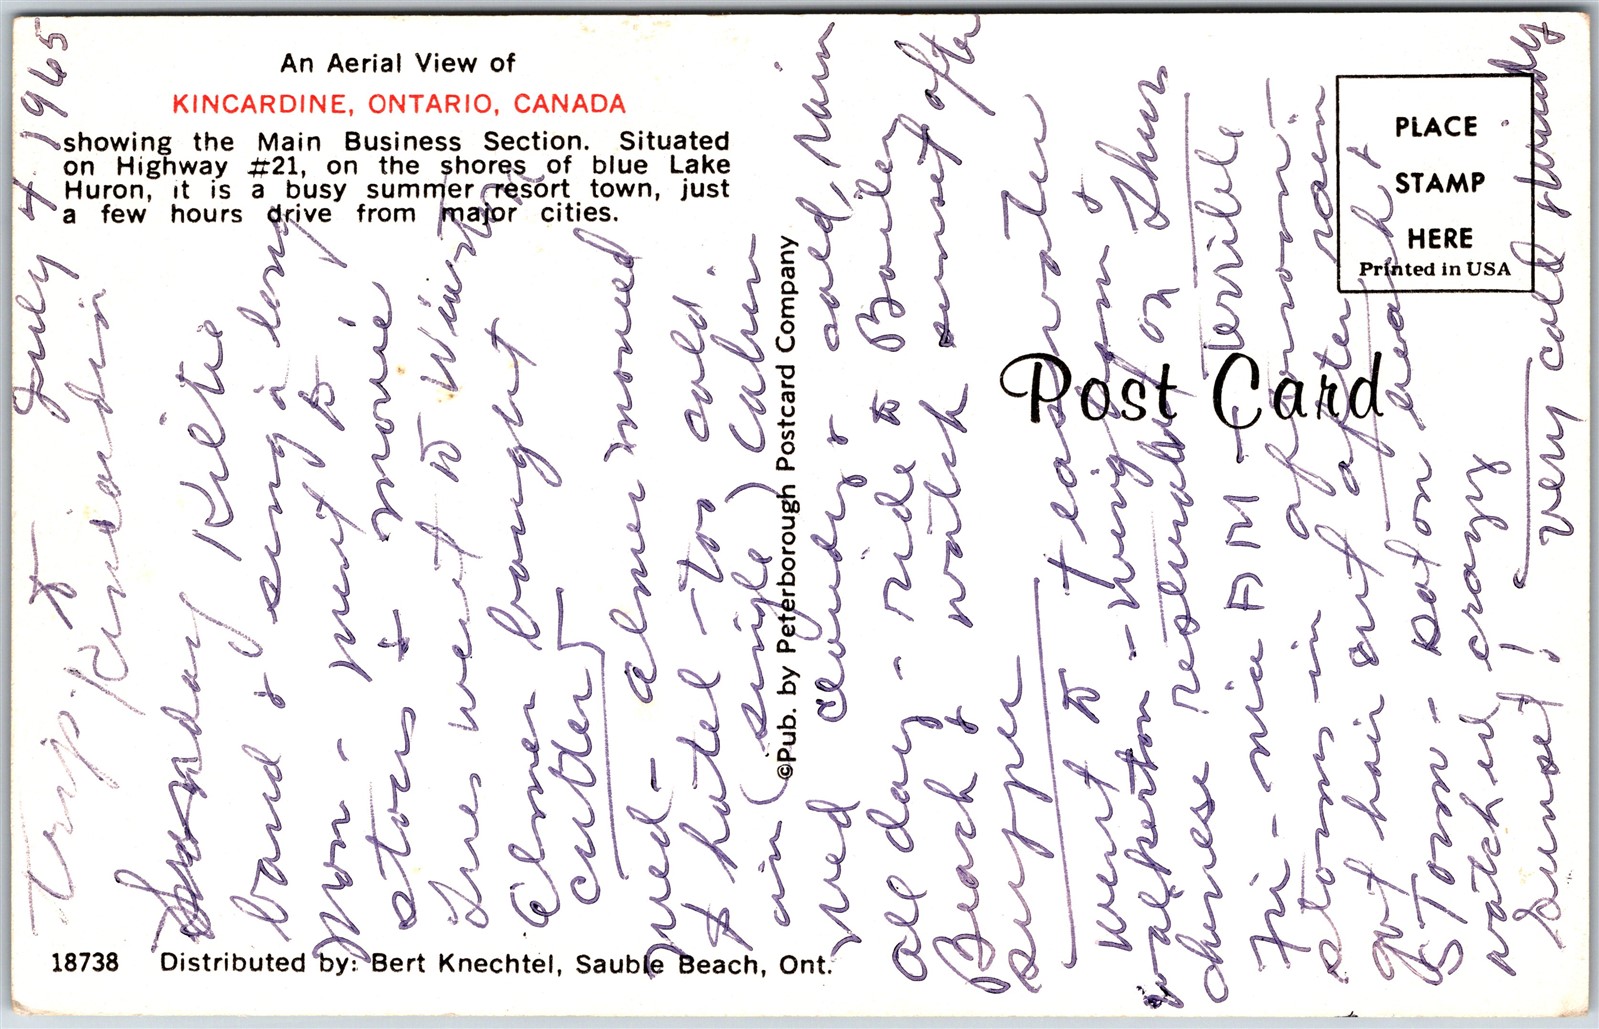 An Aerial View of
KINCARDINE, ONTARIO, CANADA
showing the Main Business Section. Situated
on Highway #21, on the shores of blue Lake
Huron, it is a busy summer resort town, just
a few hours drive from major cities.
18738 Distributed by: Bert Knechtel, Sauble Beach, Ont.
©Pub. by Peterborough Postcard Company
Post Card
PLACE
STAMP
HERE
Printed in USA
July 4 1965
Trip to Kincardin
Sunday Kiltie
band & sing a long
Mon - went to
stors & movie
Tues went to Winston
Elmer bought
cutter
Wed - Elmer moved
to hotel - too cold
in (single) cabin
Wed cloudy & cold, Win
all day - ride to Bailey
Beach & watch sunset after
supper
went to teaswater
walkerton - wingham &
chinese resturant on Thur
Fri - nice AM - terrible
storms in afternoon -
got hair cut after rain
STorm - sat on beach &
watched crazy
Sunset! very cold & windy